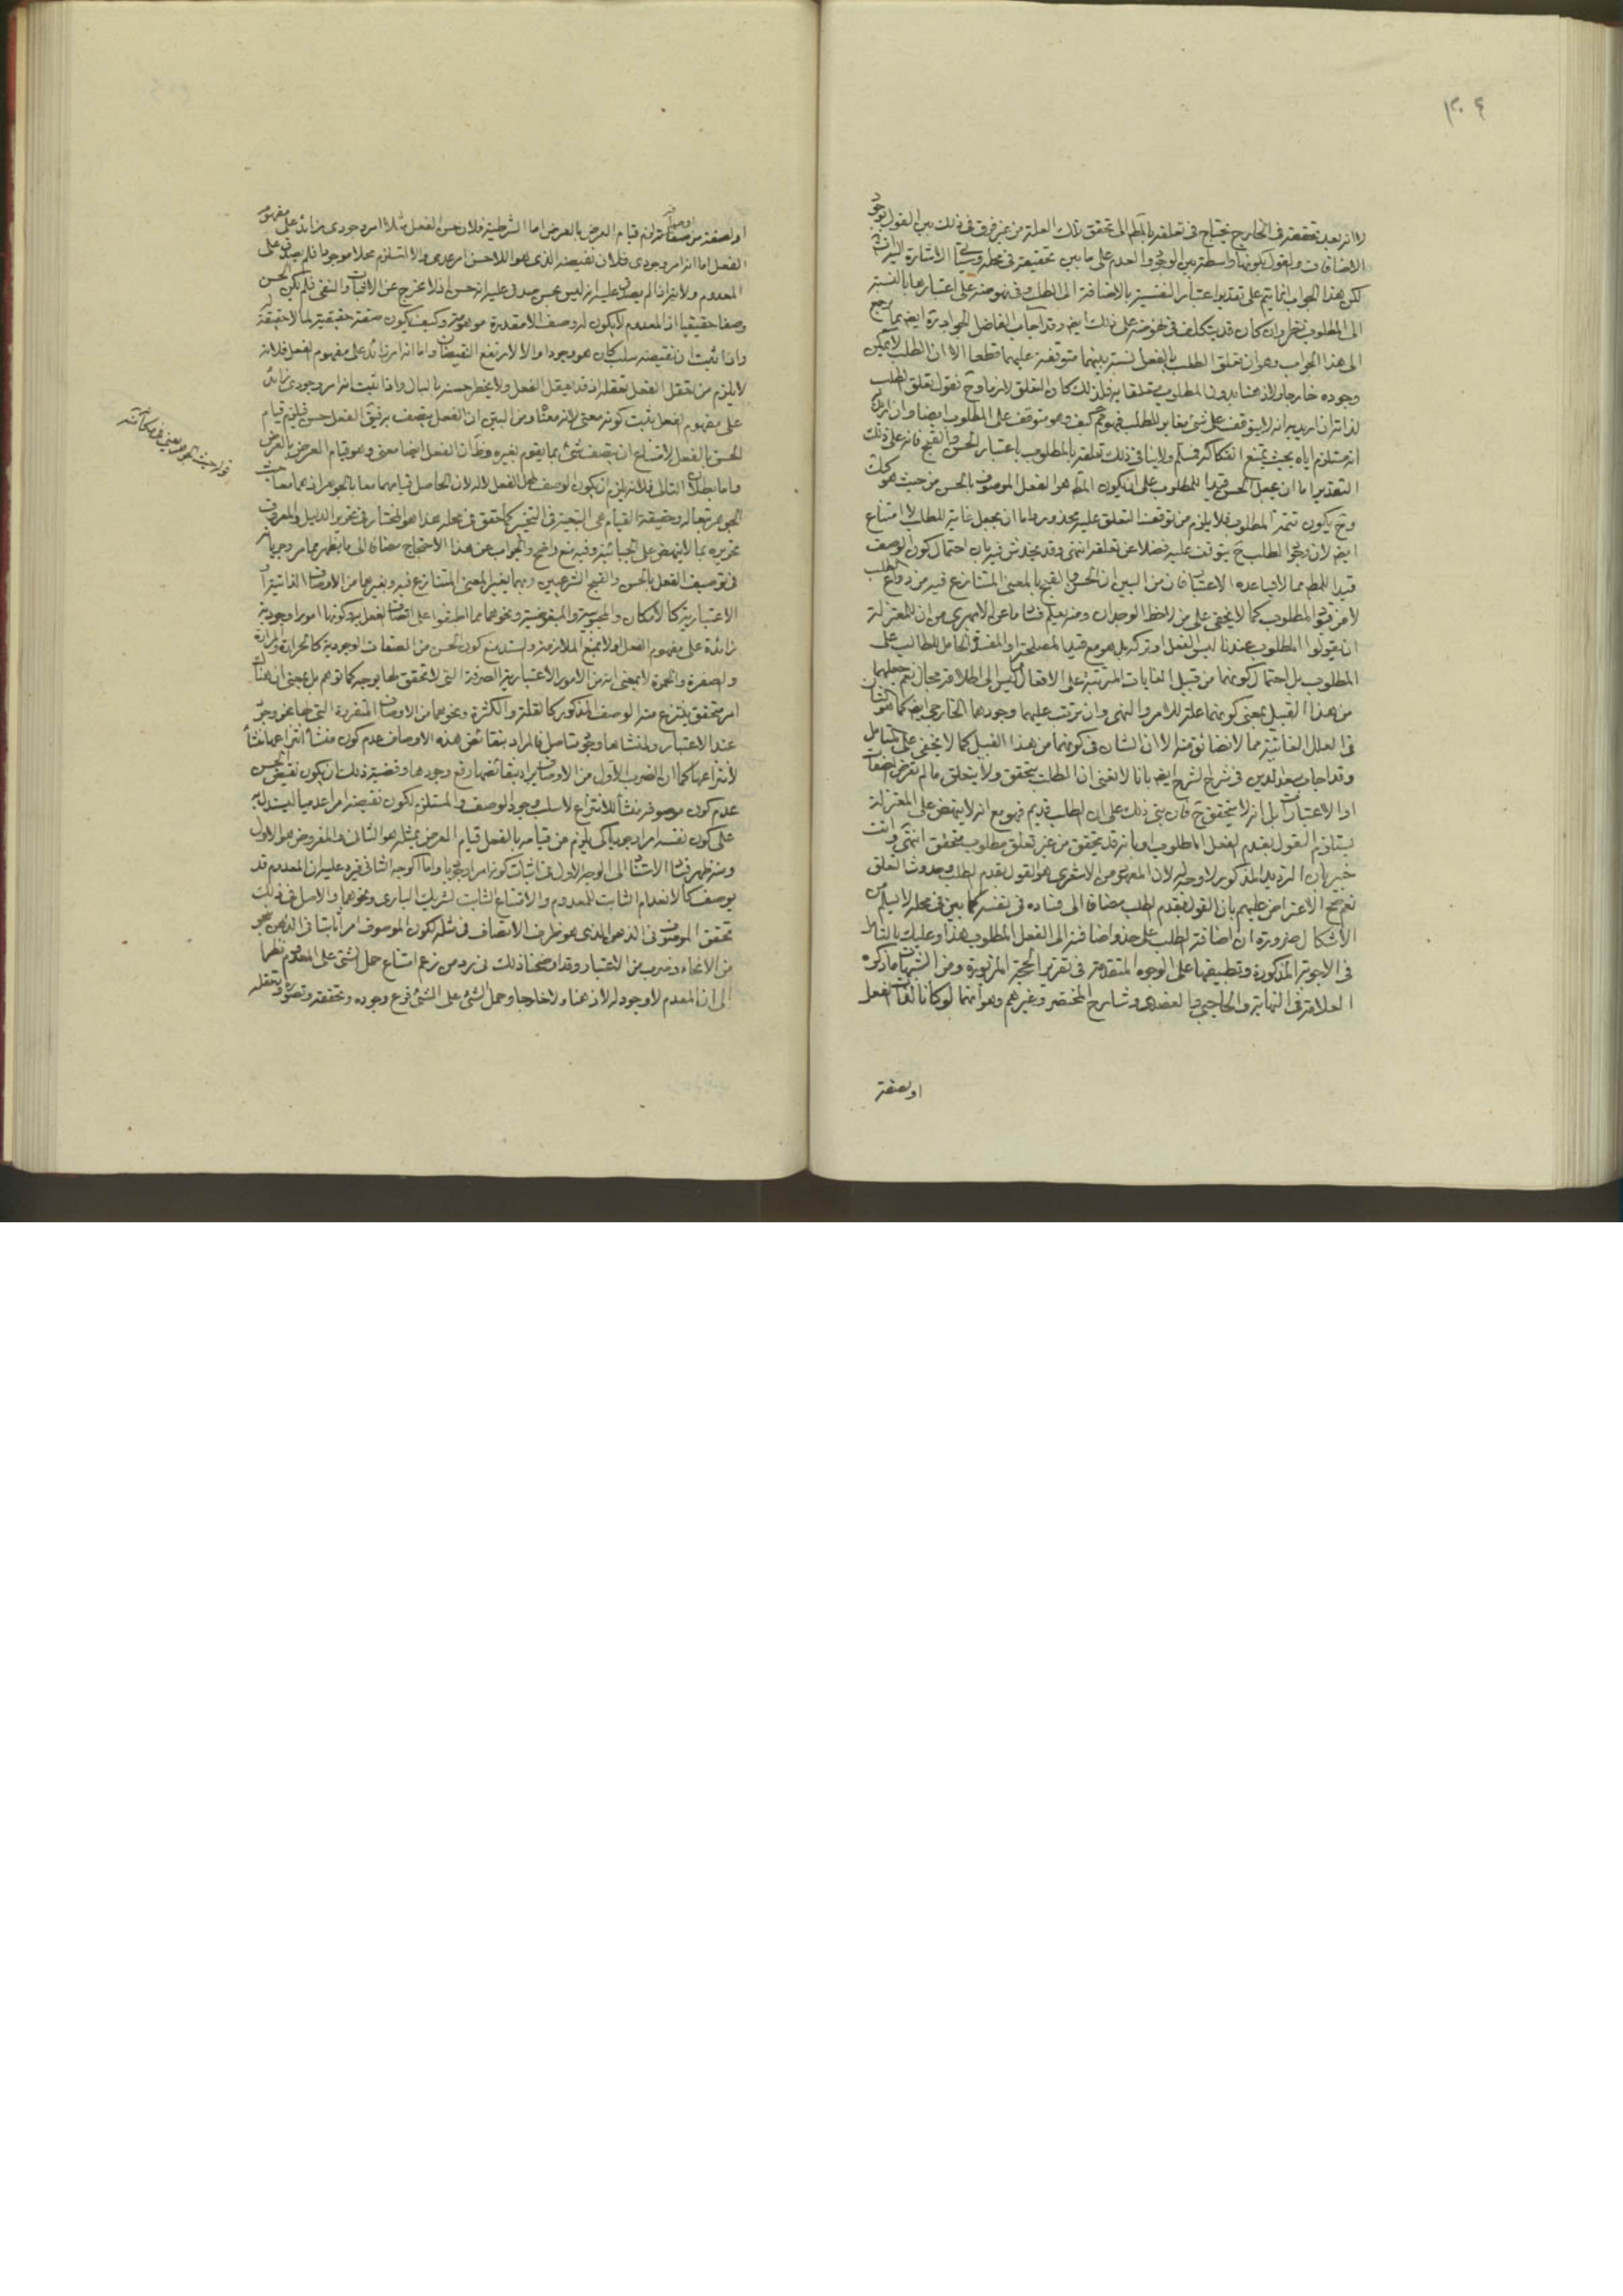 ٣٠٤
لا انه بعد تحققه في الخارج يحتاج في تعلقه بالمط الى تحقق تلك العلة من غير فرق في ذلك بين القول بوجود
الاضافات والقول بكونها واسطة بين الوجود والعدم على ما بين تحقيقه في محله وسياتي الاشارة اليه
لكن هذا الجواب انما يتم على تقدير اعتبار النفسية بالاضافة الى الطلب وفي نهوضه على اعتبارها بالنسبة
الى المطلوب نظر وان كان قد يتكلف في نهوضه على ذلك ايضا وقد اجاب الفاضل الجواد ره ايضا بما يرجع
الى هذا الجواب وهو ان تعلق الطلب بالفعل نسبة بينهما متوقفة عليهما قطعا الا ان الطلب لا يمكن
وجوده خارجا ولا ذهنا بدون المطلوب متعلقا به فلذلك كان التعلق لازما وح نقول تعلق الطلب
لذاته ان اريد به انه لا يتوقف على شئ مغاير للطلب فهو كيف وهو متوقف على المطلوب ايضا وان اريد
انه مستلزم اياه بحيث يمتنع انفكاكه فمسلم ولا ينافي ذلك تعلقه بالمطلوب باعتبار الحسن والقبح فانه على ذلك
التقدير اما ان يجعل الحسن قيدا للمطلوب على ان يكون المط هو الفعل الموصوف بالحسن من حيث هو كذلك
وح يكون تتمة المطلوب فلا يلزم من توقف التعلق عليه محذور واما ان يجعل غاية للطلب لا امتناع
ايضا لان وجود الطلب ح يتوقف عليه فضلا عن تعلقه انتهى وقد يخدش فيه بان احتمال كون الوصف
قيدا للمط مما لا يساعده الاعتبار فان من البين ان الحسن والقبح بالمعنى المتنازع فيه من دواعي الطلب
لا من قيود المطلوب كما لا يخفى على من لاحظ الوجدان ومنه يعلم فساد ما عن الابهري من ان للمعتزلة
ان يقولوا المطلوب عندنا ليس الفعل او تركه بل هو مع قيد المصلحة او المفسدة الحامل للطالب على
المطلوب بل احتمال كونهما من قبيل الغايات المترتبة على الافعال ليس الى اطلاقه مجال نعم جعلهما
من هذا القبيل بمعنى كونهما علة للامر والنهي وان ترتب عليهما وجودهما الخارجي ايضا كما هو الشان
في العلل الغائية مما لا نضائق منه الا ان الشان في كونهما من هذا القبيل كما لا يخفى على المتامل
وقد اجاب سعد الدين في شرح الشرح ايضا بانا لا نعني ان الطلب يتحقق ولا يتعلق ما لم تعرض الصفات
او الاعتبارات بل انه لا يتحقق ح فان بنى ذلك على ان الطلب قديم فهو مع انه لا ينهض على المعتزلة
يستلزم القول بقدم الفعل المطلوب او بانه قد يتحقق من غير تعلق مطلوب متحقق انتهى وانت
خبير بان الترديد المذكور لا وجه له لان المعهود من الاشعري هو القول بقدم الطلب وحدوث التعلق
نعم يتجه الاعتراض عليهم بان القول بقدم الطلب مضافا الى فساده في نفسه كما بين في محله لا يسلم من
الاشكال ضرورة ان اضافة الطلب على حد واضافته الى الفعل المطلوب هذا وعليك بالتامل
في الاجوبة المذكورة وتطبيقها على الوجوه المتقدمة في تقرير الحجة المزبورة ومن الشبهات ما ذكره
العلامة في النهاية والحاجبي والعضدي وشارح المختصر وغيرهم وهو انهما لو كانا لذات الفعل
او لصفة
او لصفة من صفاته لزم قيام العرض بالعرض اما الشرطية فلان حسن الفعل مثلا امر وجودي زائد على مفهوم
الفعل اما انه امر وجودي فلان نقيضه الذي هو اللاحسن امر عدمي والا استلزم محلا موجودا فلم يصدق على
المعدوم ولانه اذا لم يصدق عليه انه ليس بحسن صدق عليه انه حسن اذ لا مخرج عن الاثبات والنفي فلم يكن الحسن
وصفا حقيقيا اذ المعدوم لا يكون له وصف الا مقدرة موهومة وكيف يكون صفة حقيقية لما لا حقيقة له
واذا ثبت ان نقيضه سلب كان هو وجودا والا لارتفع النقيضان واما انه امر زائد على مفهوم الفعل فلانه
لا يلزم من تعقل الفعل تعقله اذ قد يعقل الفعل ولا يخطر حسنه بالبال واذا ثبت انه امر وجودي زائد
على مفهوم الفعل ثبت كونه معنى لانه معناه ومن البين ان الفعل يتصف به فيق الفعل حسن فيلزم قيام
الحسن بالفعل لامتناع ان يتصف شئ بما يقوم بغيره وظ ان الفعل ايضا معنى وهو قيام العرض بالعرض
واما بطلان التالي فلانه يلزم ان يكون الوصف محل الفعل لا له لان الحاصل قيامهما معا بالجوهر اذ هما معا حيث
الجوهر تبعا له وحقيقة القيام هي التبعية في التحيز كما حقق في محله هذا هو المختار في تحرير الدليل والمعروف
تحريره بما لا ينهض على الجبائية وفيه منع واضح والجواب عن هذا الاحتجاج مضافا الى ما يظهر مما مر وجريانه
في توصيف الفعل بالحسن والقبح الشرعيين وبهما بغير المعنى المتنازع فيه وبغيرهما من الاوصاف الذاتية او
الاعتبارية كالامكان والمحبوبية والمبغوضية ونحوهما مما اطبقوا على اتصاف الفعل به وكونها امورا وجودية
زائدة على مفهوم الفعل اولا بمنع الملازمة والسند منع كون الحسن من الصفات الوجودية كالحرارة والبرودة
والصفرة والحمرة لا بمعنى انه من الامور الاعتبارية الصرفة التي لا تحقق لها بوجه كما توهم بل بمعنى ان هناك
امر متحقق ينتزع منه الوصف المذكور كالقلة والكثرة ونحوهما من الاوصاف المنفردة التي لها نحو وجود
عند الاعتبار ولمنشاها وجود متاصل فالمراد بنقائض هذه الاوصاف عدم كون منشا انتزاعها منشا
لانتزاعها كما ان الضرب الاول من الاوصاف يراد بنقائضها رفع وجودها وقضية ذلك ان يكون نقيض الحسن
عدم كون موصوفه منشا للانتزاع لا سلب وجود الوصف والمستلزم لكون نقيضه امرا عدميا ليستدل به
على كون نفسه امرا وجوديا كي يلزم من قيامه بالفعل قيام العرض بمثله هو الثاني والمفروض هو الاول
ومنه ظهر فساد الاستناد الى الوجه الاول في اثبات كونه امرا وجوديا واما الوجه الثاني فيرد عليه ان المعدوم قد
يوصف كالانعدام الثابت للمعدوم والامتناع الثابت لشريك الباري ونحوهما والاصل في ذلك
تحقق الموصوف في الذهن الذي هو ظرف الاتصاف في مثله لكون الموصوف امرا ثابتا في الذهن بنحو
من الانحاء وضرب من الاعتبار وقد اوضحنا ذلك في رد من زعم امتناع حمل الشئ على المعدوم نظرا
الى ان المعدوم لا وجود له لا ذهنا ولا خارجا وحمل الشئ على الشئ فرع وجوده وتحققه وتصوره وتعقله